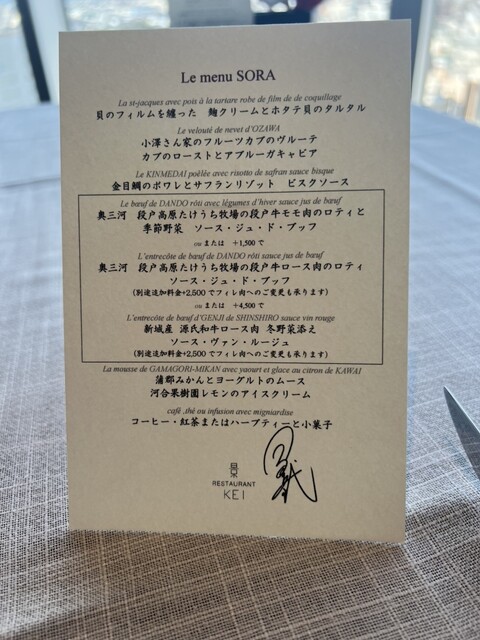 Le menu SORA
La st-jacques avec pois à la tartare robe de film de de coquillage
貝のフィルムを纏った　麹クリームとホタテ貝のタルタル
Le velouté de nevet d'OZAWA
小澤さん家のフルーツカブのヴルーテ
カブのローストとアブルーガキャビア
Le KINMEDAI poêlée avec risotto de safran sauce bisque
金目鯛のポワレとサフランリゾット　ビスクソース
Le bœuf de DANDO rôti avec légumes d'hiver sauce jus de bœuf
奥三河　段戸高原たけうち牧場の段戸牛モモ肉のロティと
季節野菜　ソース・ジュ・ド・ブッフ
ou または　+1,500 で
L'entrecôte de bœuf de DANDO rôti sauce jus de bœuf
奥三河　段戸高原たけうち牧場の段戸牛ロース肉のロティ
ソース・ジュ・ド・ブッフ
(別途追加料金+2,500 でフィレ肉へのご変更も承ります)
ou または　+4,500 で
L'entrecôte de bœuf d'GENJI de SHINSHIRO sauce vin rouge
新城産 源氏和牛ロース肉 冬野菜添え
ソース・ヴァン・ルージュ
(別途追加料金+2,500 でフィレ肉へのご変更も承ります)
La mousse de GAMAGORI-MIKAN avec yaourt et glace au citron de KAWAI
蒲郡みかんとヨーグルトのムース
河合果樹園レモンのアイスクリーム
café ,thé ou infusion avec migniardise
コーヒー・紅茶またはハーブティーと小菓子
RESTAURANT
KEI